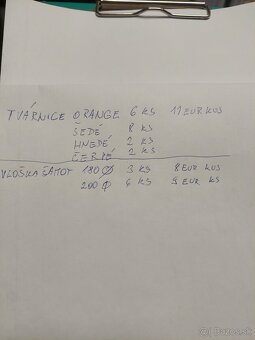 TVÁRNICE ORANGE 6 KS 11 EUR KUS
ŠEDÉ 8 KS
HNEDÉ 2 KS
ČERNÉ 2 KS
VLOŽKA ŠAMOT 180 Ø 3 KS 8 EUR KUS
200 Ø 6 KS 9 EUR KS
bazos.sk